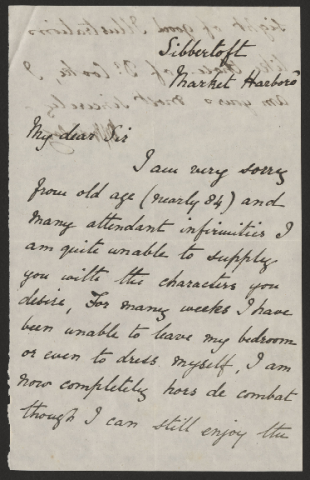 Sibbertoft
Market Harboro
My dear Sir
I am very sorry
from old age (nearly 84) and
many attendant infirmities I
am quite unable to supply
you with the characters you
desire, For many weeks I have
been unable to leave my bedroom
or even to dress myself, I am
now completely hors de combat
though I can still enjoy the